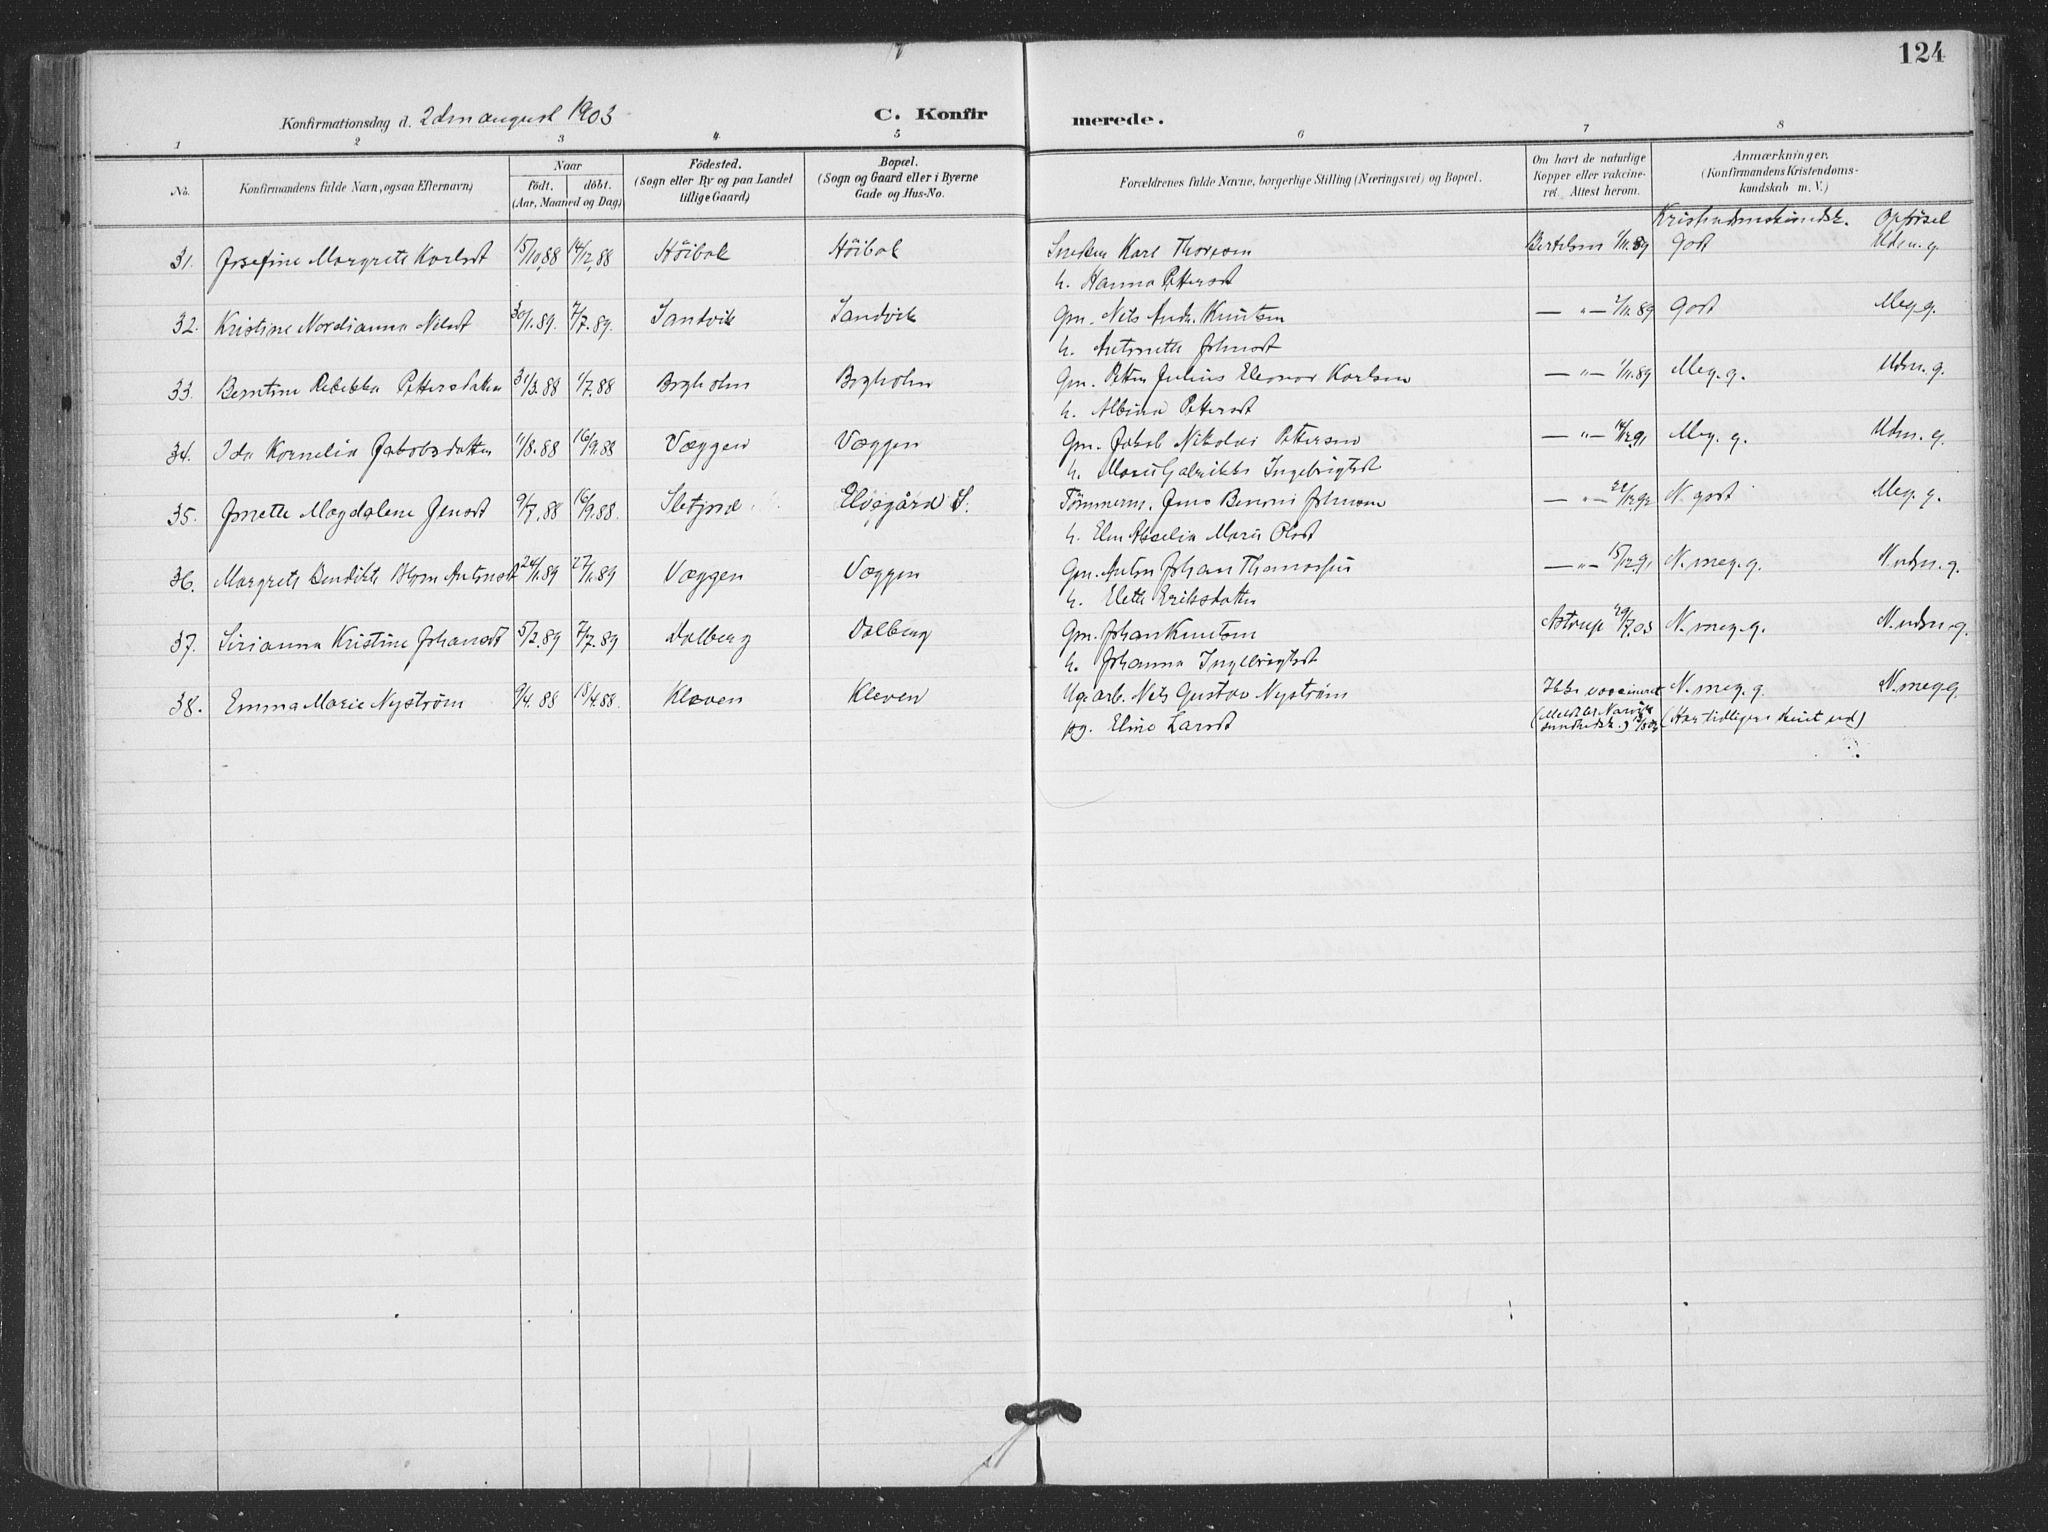 124
Konfirmationsdag d. 2den august 1903
C. Konfirmerede.
1 2 3 4 5 6 7 8
No.
Konfirmandens fulde Navn, ogsaa Efternavn)
Naar
födt. döbt.
(Aar, Maaned og Dag)
Födested.
(Sogn eller By og paa Landet
tillige Gaard)
Bopæl.
(Sogn og Gaard eller i Byerne
Gade og Hus-No.
Forældrenes fulde Navne, borgerlige Stilling (Næringsvei) og Bopæl.
Om havt de naturlige
Kopper eller vakcine-
ret. Attest herom.
Anmærkninger.
(Konfirmandens Kristendoms-
kundskab m. V.)
Kristendomskundsk. Opførsel
31. Josefine Margrete Karlsdt 15/10,88 14/12,88 Høibak Høibak Karl Thoresen Bertelsen 1/11.89 Godt Udm. g.
h. Hanna Pettersdt
32. Kristine Nordianna Nilsdt 30/1.89. 7/7.89. Sandvik Sandvik Gm. Nils Andr. Knutsen — " — 2/11.89 Godt Meg. g.
h. Antonette Johnsdt
33. Berntine Rebekka Pettersdatter 31/3.88 1/7.88 Bogholm Bogholm Gm. Petter Julius Eleonor Karlsen — " — 1/11.89 Meg. g. Udm. g.
h. Albina Pettersdt
34. Ida Kornelia Jakobsdatter 11/8.88 16/9.88 Væggen Væggen Gm. Jakob Nikolai Pettersen — " — 14/12.91 Meg. g. Udm. g.
h. Marie Ingebrigtsdt
35. Jonette Magdalene Jensdt 9/7.88 16/9.88. Sletjord Elvegård S. Tømmerm. Jens Benoni Johnsen — " — 22/12.92 N. godt Meg. g.
h. Marie Olsdt
36. Margrete Bendikte Antonsdt 24/1.89 27/1.89 Væggen Væggen Gm. Anton Johan — " — 15/12.91 N. meg. g. N. udm. g.
h. Elette Eriksdatter
37. Sirianna Kristine Johansdt 5/2.89 7/7.89 Dalberg Dalberg Gm. Johan Knutsen Astrup 29/7.03 N. meg. g. N. udm. g.
h. Johanna Ingebrigtsdt
38. Emma Marie Nystrøm 9/4.88 15/4.88 Kleven Kleven Nils Gustav Nystrøm Ikke vaccineret N. meg. g. N. meg. g.
pg. Eline Larsdt (Har tidligere skeiet ud)